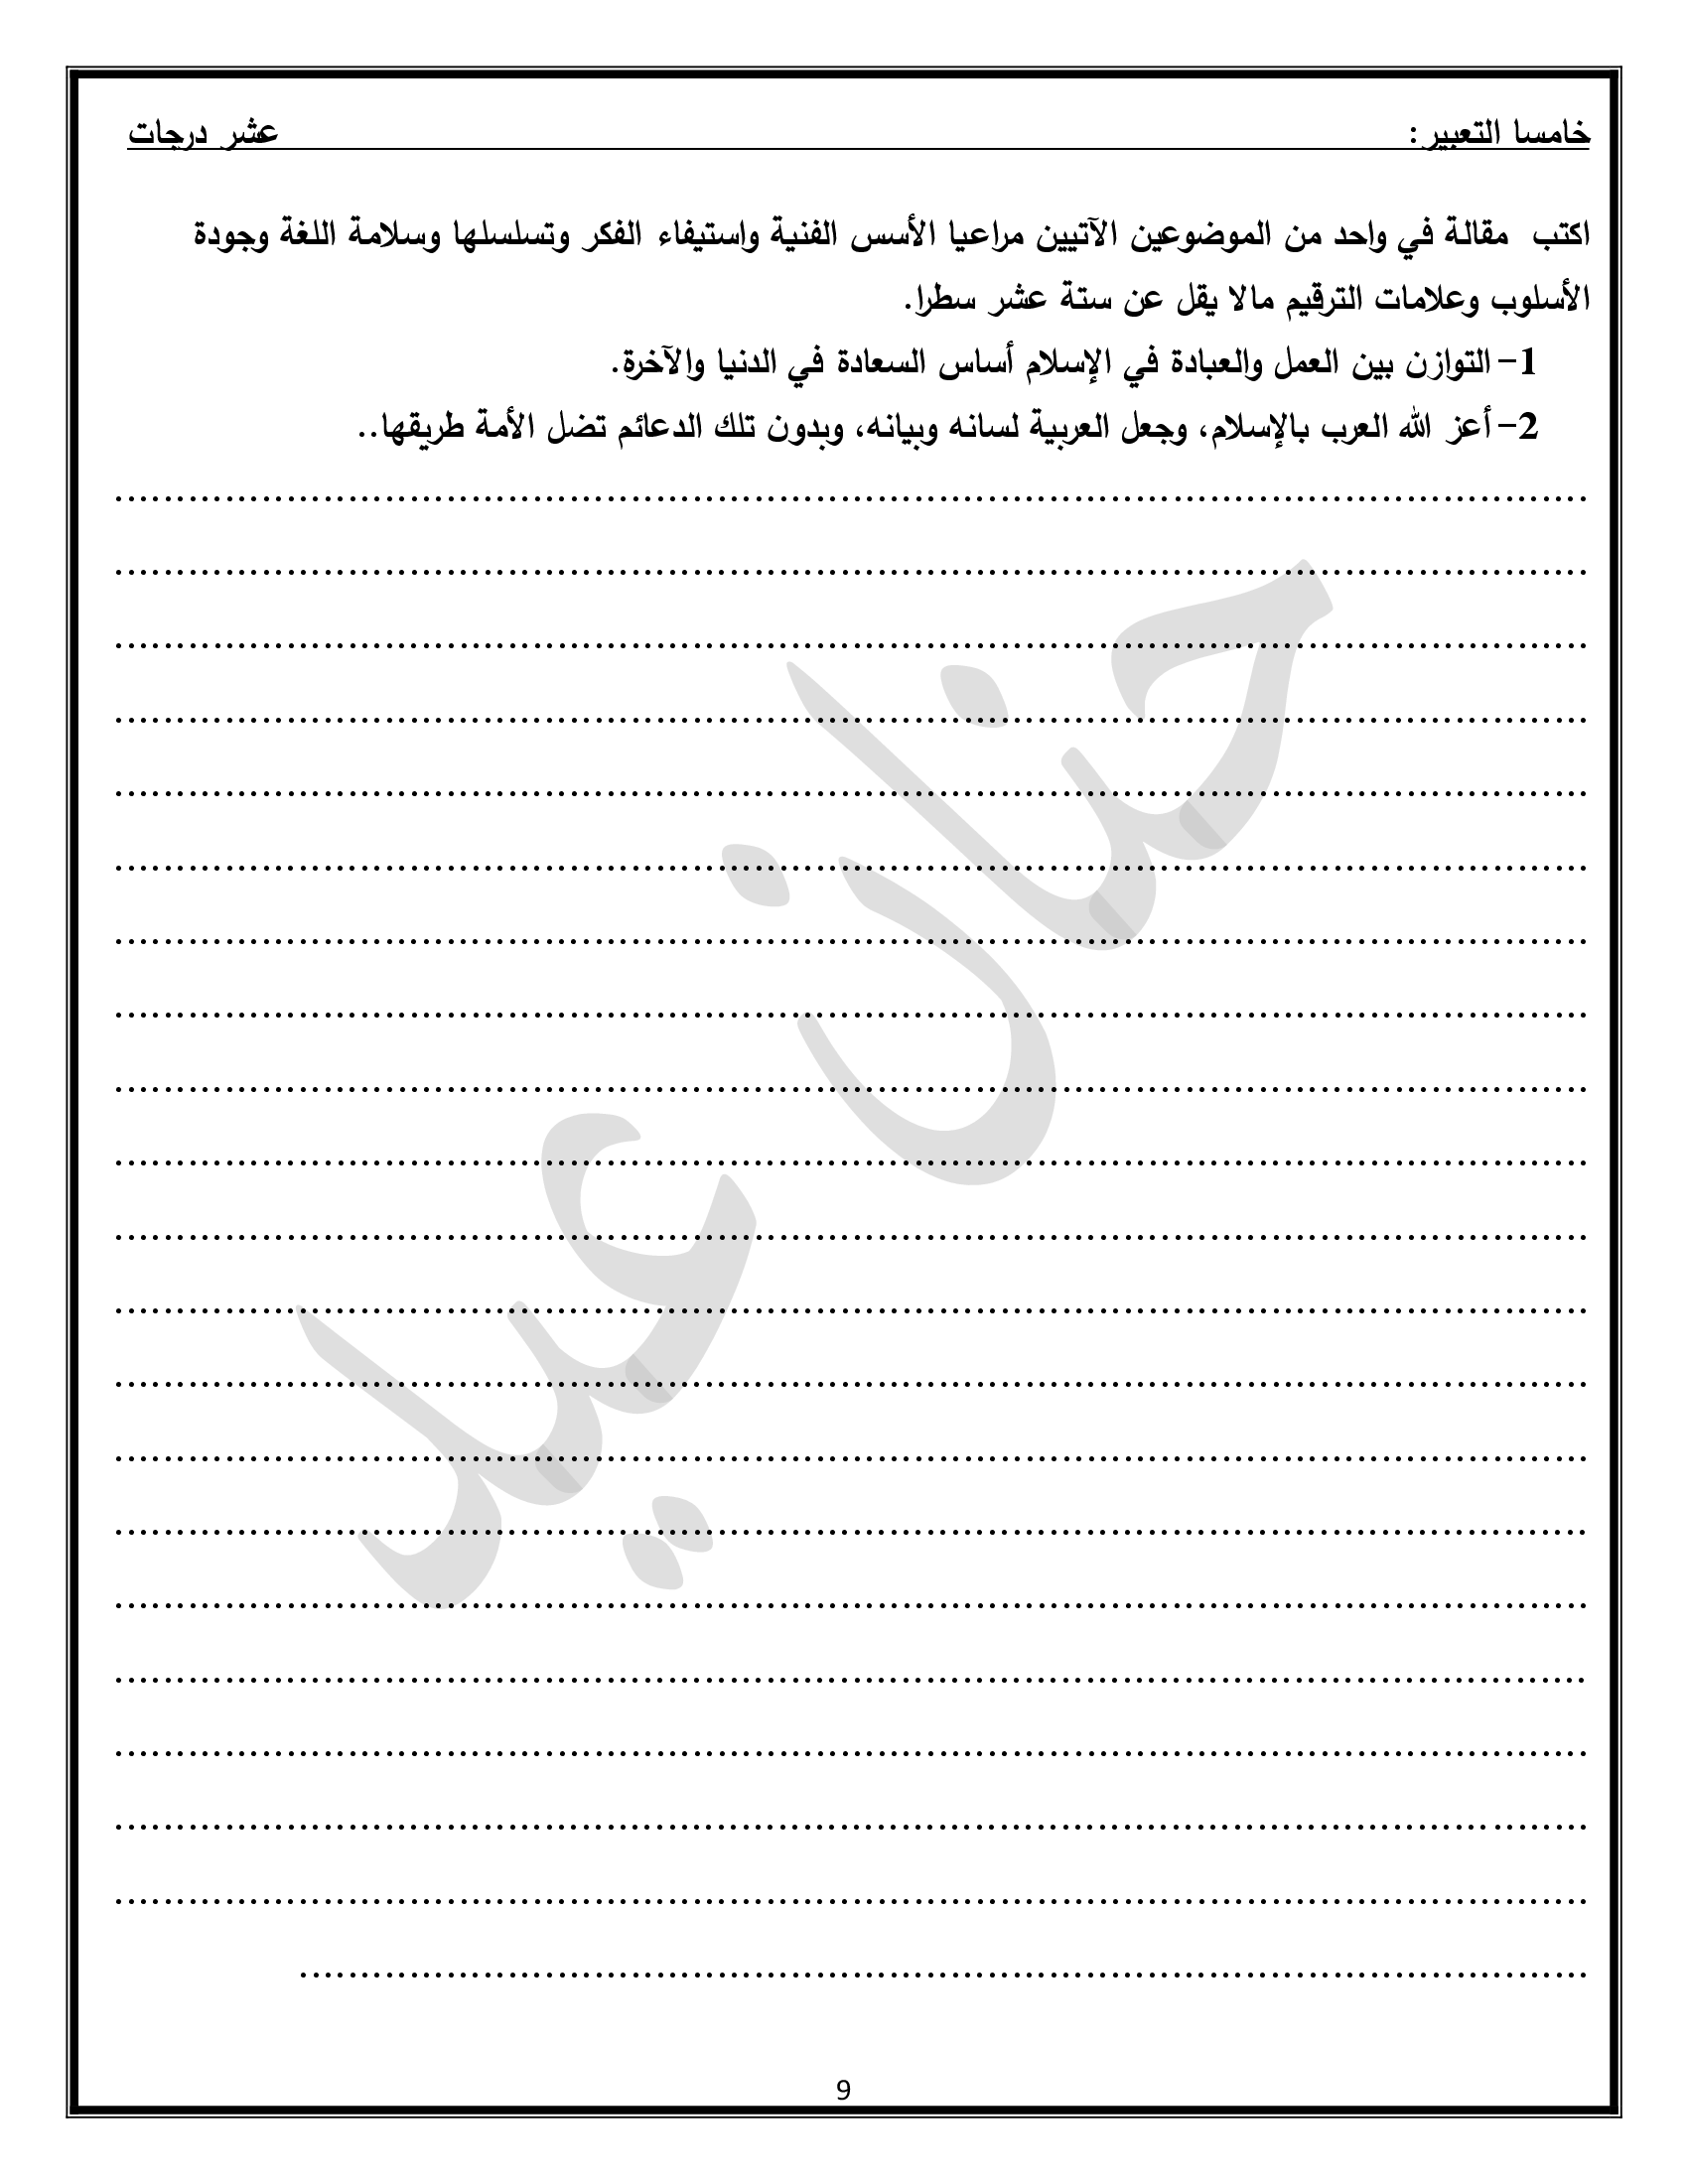 خامسا التعبير: عشر درجات
اكتب مقالة في واحد من الموضوعين الآتيين مراعيا الأسس الفنية واستيفاء الفكر وتسلسلها وسلامة اللغة وجودة
الأسلوب وعلامات الترقيم مالا يقل عن ستة عشر سطرا.
1- التوازن بين العمل والعبادة في الإسلام أساس السعادة في الدنيا والآخرة.
2- أعز الله العرب بالإسلام، وجعل العربية لسانه وبيانه، وبدون تلك الدعائم تضل الأمة طريقها..
حنان عيد
9